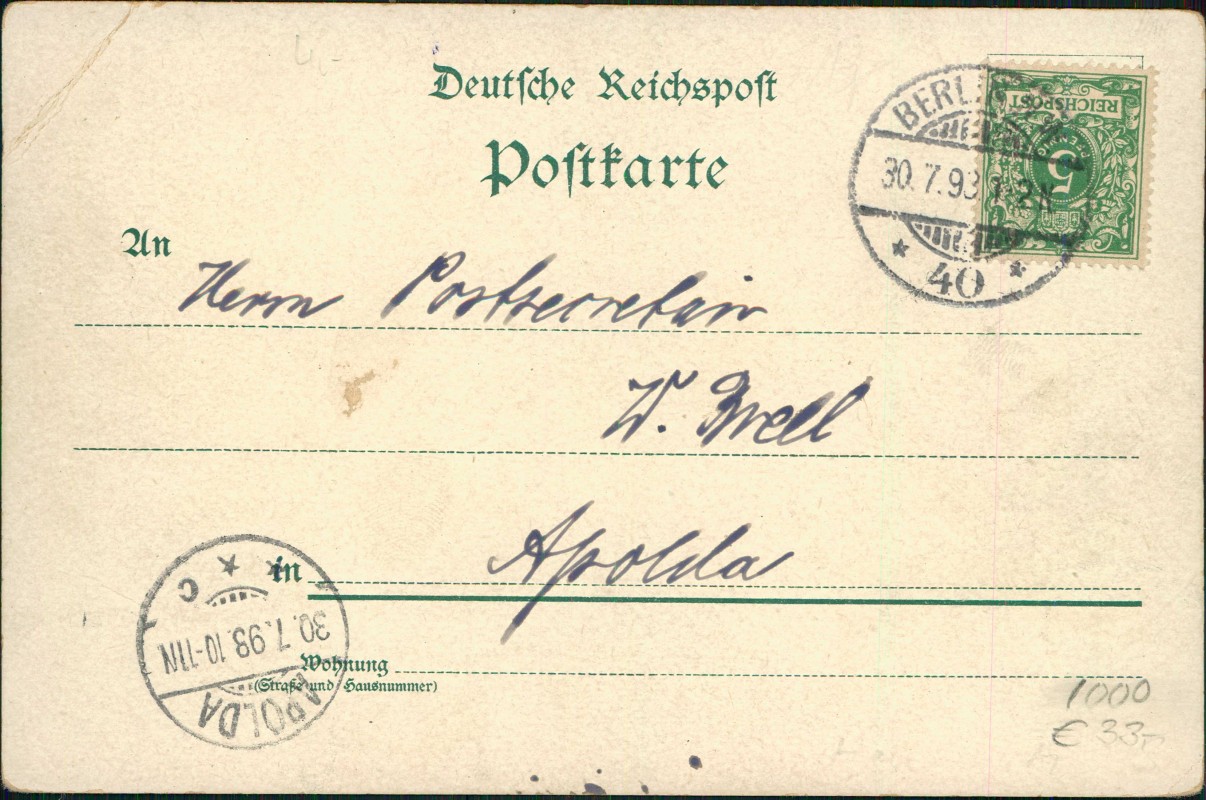 Deutsche Reichspost
Postkarte
REICHSPOST
5
PFENNIG
BERLIN
30.7.93 1-2N
* 40 *
An
Herrn Postsecretair
W. Brell
in Apolda
APOLDA
30.7.93.10-11N
* C
Wohnung
(Straße und Hausnummer)
1000
€ 33,-